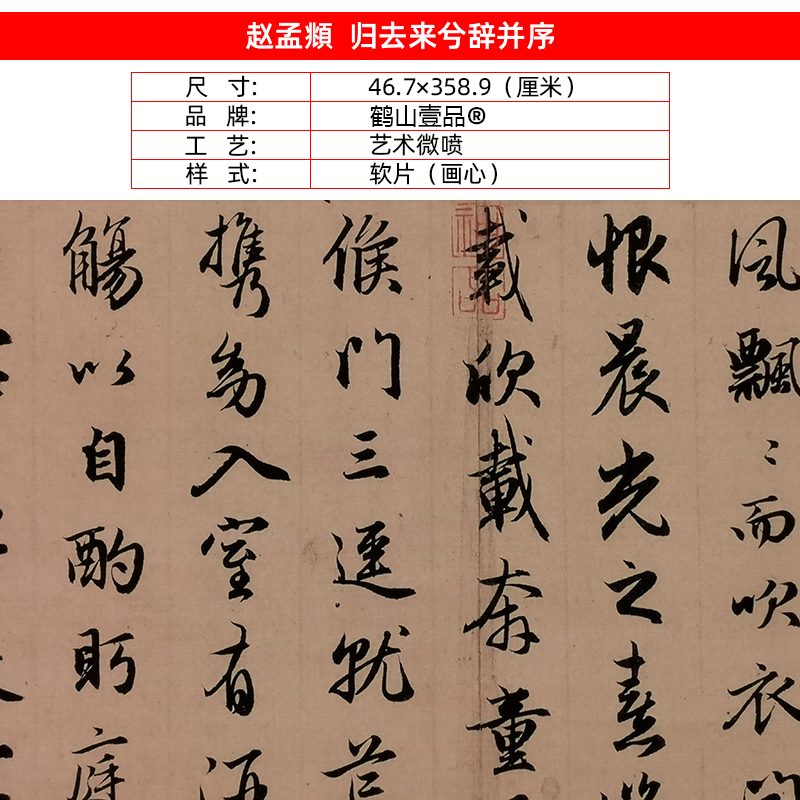 赵孟頫 归去来兮辞并序
尺 寸: 46.7×358.9（厘米）
品 牌: 鹤山壹品®
工 艺: 艺术微喷
样 式: 软片（画心）
風飄〻而吹衣
恨晨光之熹
載欣載奔童
候門三逕就荒
携幼入室有酒
觴以自酌眄庭